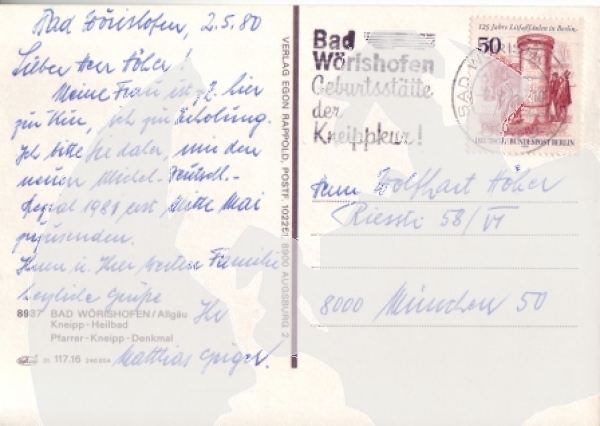 Bad Wörishofen, 2.5.80
Lieber Herr Höher!
Meine Frau ist z.Z. hier
zur Kur, ich zur Erholung.
Ich bitte Sie daher, mir den
neuen Michel-Deutschl.-
1981 erst Mitte Mai
zuzusenden.
Ihnen u. Ihrer werten Familie
herzliche Grüße
Ihr
Matthias Geiger
8937 BAD WÖRISHOFEN/Allgäu
Kneipp-Heilbad
Pfarrer-Kneipp-Denkmal
21 117.16
VERLAG EGON RAPPOLD, POSTF. 102251, 8900 AUGSBURG 2
Bad
Wörishofen
Geburtsstätte
der
Kneippkur!
125 Jahre Litfaßsäulen in Berlin
50
DEUTSCHE BUNDESPOST BERLIN
BAD WÖRIS
Herrn Wolfhart Höher
Riesstr. 58/VI
8000 München 50